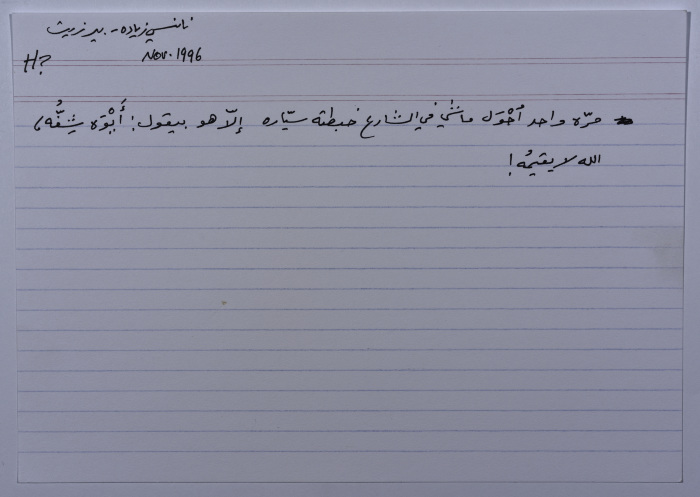 نانسي زياده - بير زيت
Nov. 1996
H?
مرّه واحد أحْوَل ماشي في الشارع خبطته سيّاره إلّا هو بيقول: أَبْوَه شِقُّه،
الله لا يقيمُه!